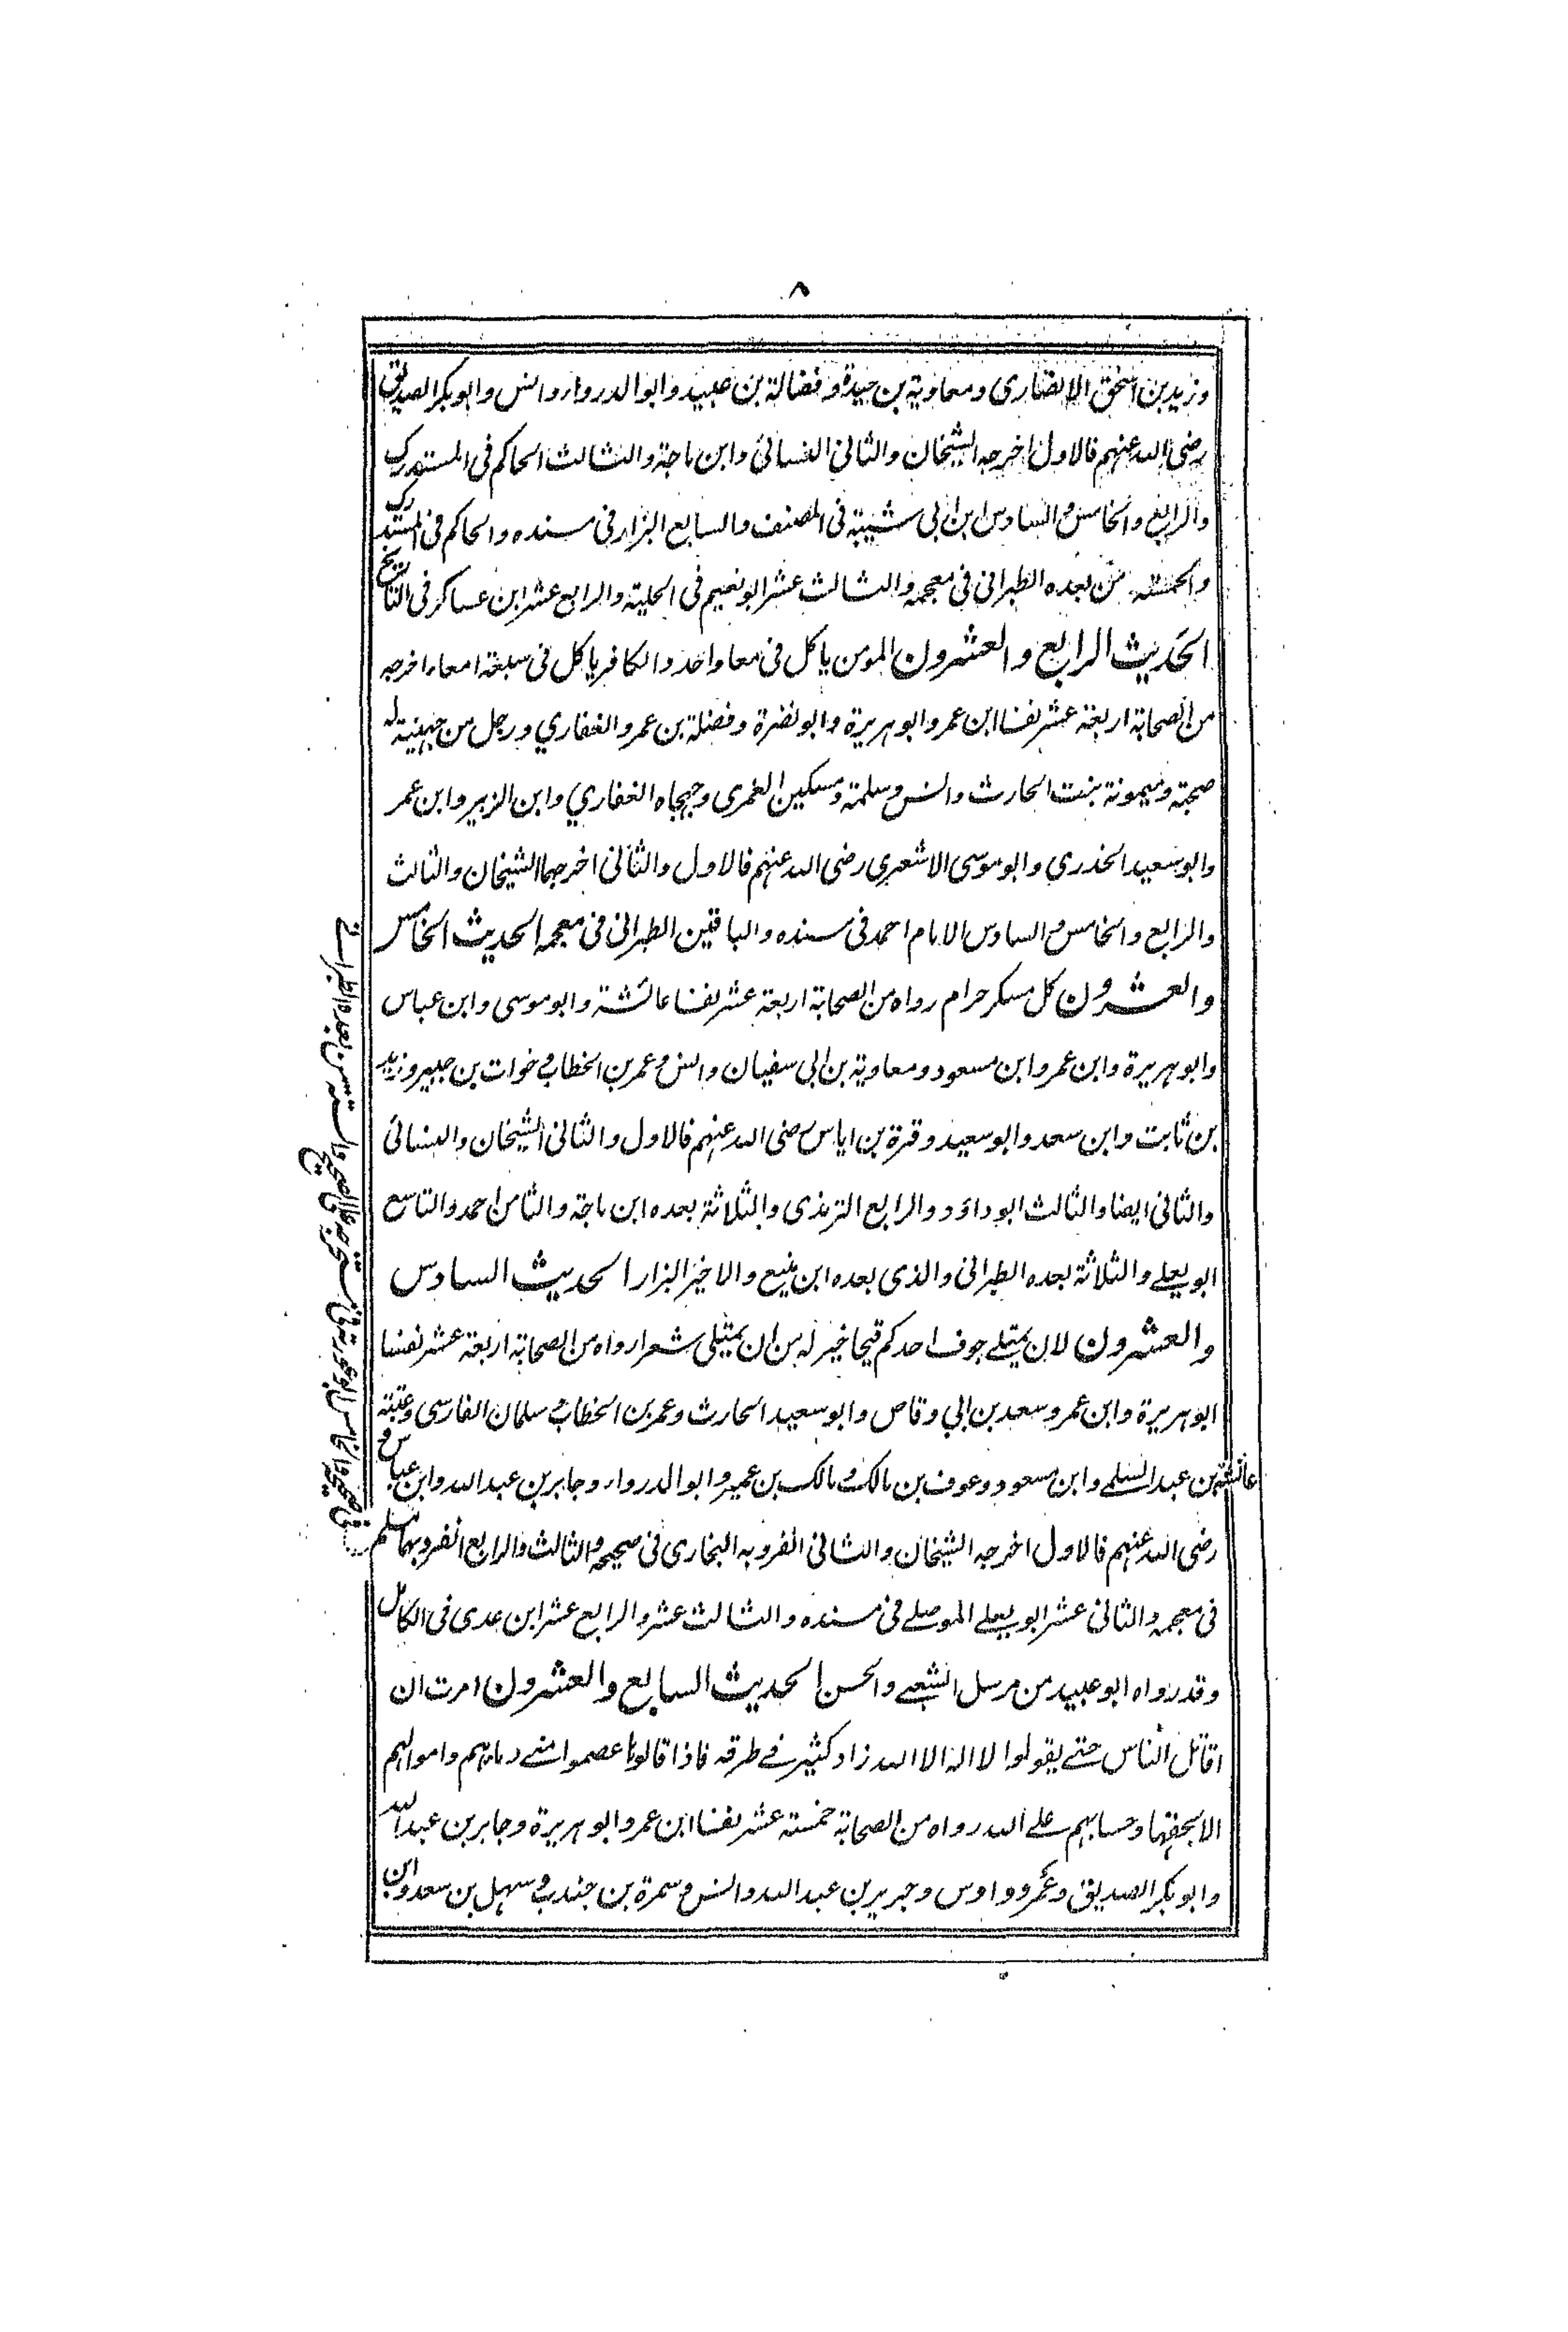 ٨
وزيد بن اسحق الانصارى ومعاوية بن حيدة وفضالة بن عبيد وابو الدرداء وانس وابو بكر الصديق
رضى الله عنهم فالاول اخرجه الشيخان والثانى النسائى وابن ماجة والثالث الحاكم فى المستدرك
والرابع والخامس والسادس ابن ابى شيبة فى المصنف والسابع البزار فى مسنده والحاكم فى المستدرك
والخمسة من بعده الطبرانى فى معجمه والثالث عشر ابو نعيم فى الحلية والرابع عشر ابن عساكر فى التاريخ
الحديث الرابع والعشرون المومن ياكل فى معا واحد والكافر ياكل فى سبعة امعاء اخرجه
من الصحابة اربعة عشر نفسا ابن عمر وابو هريرة وابو نضرة وفضلة بن عمرو الغفاري ورجل من جهينة له
صحبة وميمونة بنت الحارث وانس وسلمة ومسكين العمرى وجهجاه الغفاري وابن الزبير وابن عمر
وابو سعيد الخدري وابو موسى الاشعري رضى الله عنهم فالاول والثانى اخرجهما الشيخان والثالث
والرابع والخامس والسادس الامام احمد فى مسنده والباقين الطبرانى فى معجمه الحديث الخامس
والعشرون كل مسكر حرام رواه من الصحابة اربعة عشر نفسا عائشة وابو موسى وابن عباس
وابو هريرة وابن عمر وابن مسعود ومعاوية بن ابى سفيان وانس وعمر بن الخطاب وخوات بن جبير وزيد
بن ثابت وابن سعد وابو سعيد وقرة بن اياس رضى الله عنهم فالاول والثانى الشيخان والنسائى
والثانى ايضا والثالث ابو داؤد والرابع الترمذى والثلاثة بعده ابن ماجة والثامن احمد والتاسع
ابو يعلے والثلاثة بعده الطبرانى والذى بعده ابن منيع والاخير البزار الحديث السادس
والعشرون لان يمتلے جوف احدكم قيحا خير له من ان يمتلى شعرا رواه من الصحابة اربعة عشر نفسا
ابو هريرة وابن عمر وسعد بن ابي وقاص وابو سعيد الحارث وعمر بن الخطاب وسلمان الفارسى وعتبة
بن عبد السلمے وابن مسعود وعوف بن مالك ومالك بن عمير وابو الدرداء وجابر بن عبد الله وابن عباس و عائشة
رضى الله عنهم فالاول اخرجه الشيخان والثانى انفرد به البخارى فى صحيحه والثالث والرابع انفرد بهما مسلم
فى معجمه والثانى عشر ابو يعلے الموصلے فى مسنده والثالث عشر والرابع عشر ابن عدى فى الكامل
وقد رواه ابو عبيد من مرسل الشعبے والحسن الحديث السابع والعشرون امرت ان
اقاتل الناس حتے يقولوا لا اله الا الله زاد كثير فے طرقه فاذا قالوها عصموا منے دماءهم واموالهم
الا بحقها وحسابهم علے الله رواه من الصحابة خمسة عشر نفسا ابن عمر وابو هريرة وجابر بن عبد الله
وابو بكر الصديق وعمر واوس وجرير بن عبد الله وانس وسمرة بن جندب وسهل بن سعد وابن